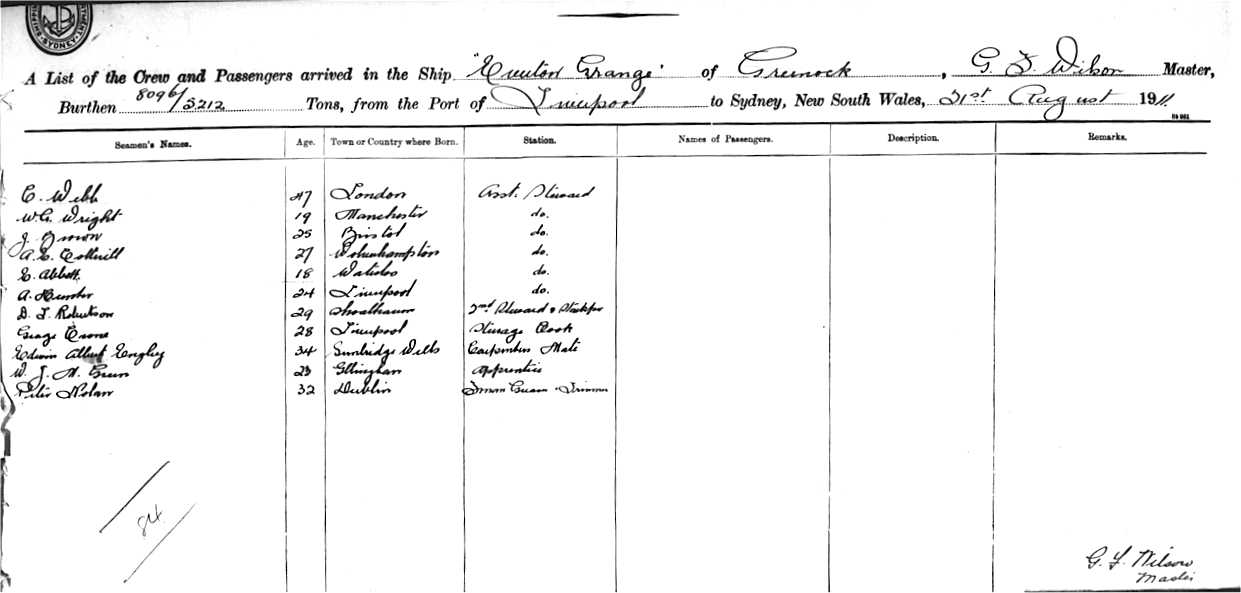 SYDNEY
A List of the Crew and Passengers arrived in the Ship "Everton Grange" of Greenock, G. F. Wilson Master,
Burthen 8096/5212 Tons, from the Port of Liverpool to Sydney, New South Wales, 21st August 1911.
Seamen's Names. Age. Town or Country where Born. Station. Names of Passengers. Description. Remarks.
E. Webb 47 London Asst. Steward
W.G. Wright 19 Manchester do.
J. Brown 25 Bristol do.
A.E. 27 Wolverhampton do.
E. Abbott 18 Waterloo do.
A. Hunter 24 Liverpool do.
D. T. Robertson 29 2nd Steward & Storekpr
George Crone 28 Liverpool Steerage Cook
Edwin Albert Engley 34 Tunbridge Wells Carpenters Mate
W. J. M. Green 23 Apprentice
Peter Nolan 32 Dublin Trimmer
84
G. F. Wilson
Master